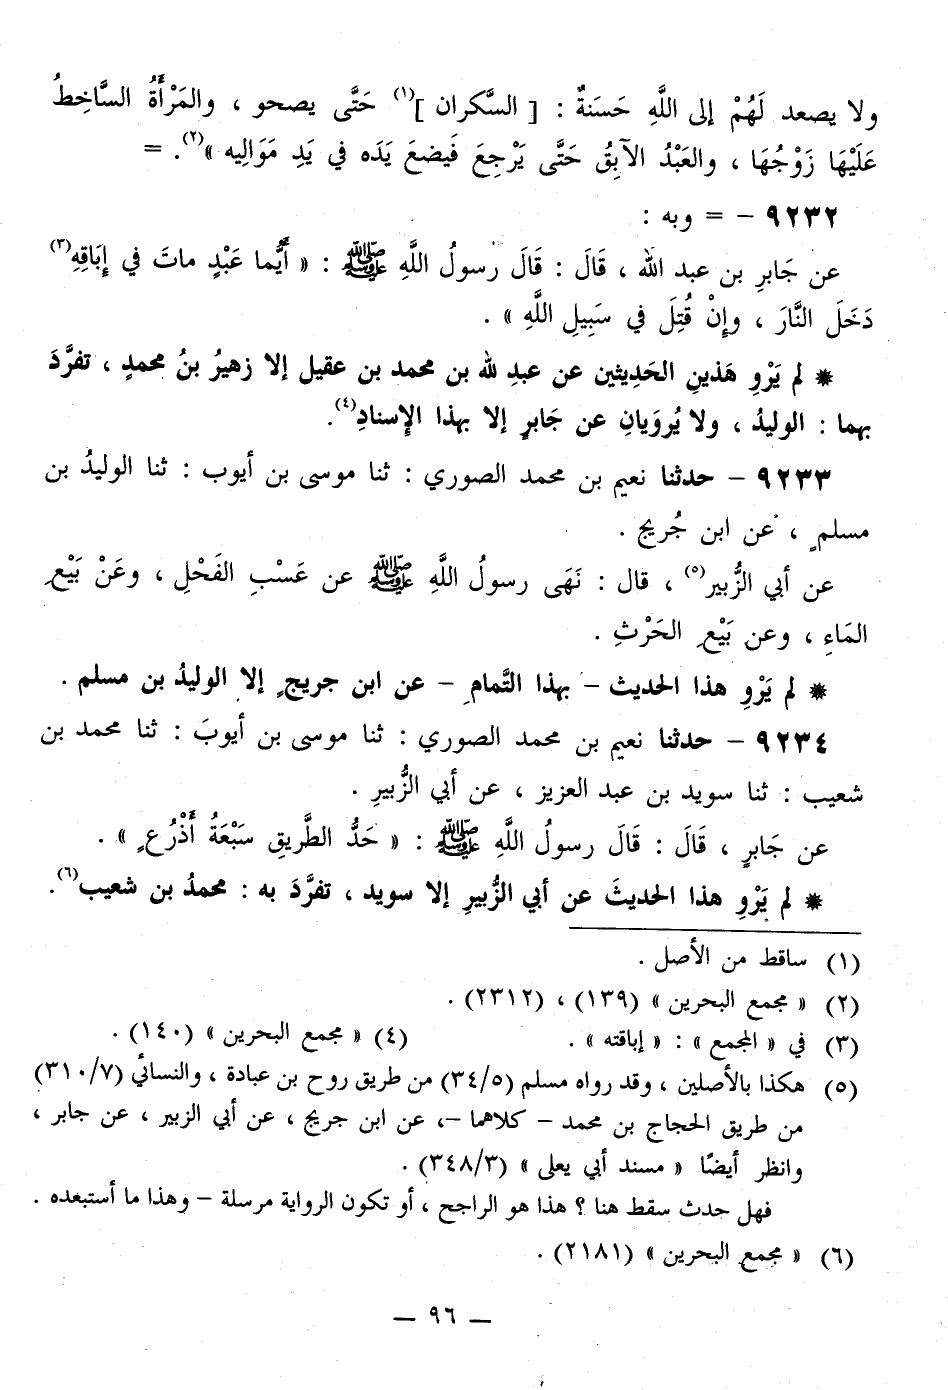 ولا يصعد لَهُمْ إلى اللَّهِ حَسَنةٌ : [ السَّكران ](١) حَتَّى يصحو ، والمَرْأَةُ السَّاخِطُ
عَلَيْهَا زَوْجُهَا ، والعَبْدُ الآبِقُ حَتَّى يَرْجِعَ فَيضعَ يَدَه في يَدِ مَوَالِيه »(٢). =
٩٢٣٢ – = وبه :
عن جَابرِ بن عبد الله ، قَالَ : قَالَ رسولُ اللَّهِ ﷺ : « أَيُّما عَبْدٍ ماتَ في إِبَاقِهِ(٣)
دَخَلَ النَّارَ ، وإِنْ قُتِلَ في سَبِيلِ اللَّهِ » .
* لم يَرْوِ هَذينِ الحَدِيثين عن عبدِ لله بن محمد بن عقيل إلا زهيرُ بنُ محمدٍ ، تفرَّدَ
بهما : الوليدُ ، ولا يُروَيانِ عن جَابرٍ إلا بهذا الإِسنادِ(٤).
٩٢٣٣ – حدثنا نعيم بن محمد الصوري : ثنا موسى بن أيوب : ثنا الوليدُ بن
مسلمٍ ، عن ابن جُريج .
عن أبي الزُّبير(٥) ، قال : نَهَى رسولُ اللَّهِ ﷺ عن عَسْبِ الفَحْلِ ، وعَنْ بَيْعِ
المَاءِ ، وعن بَيْعِ الحَرْثِ .
* لم يَرْوِ هذا الحديث – بهذا التَّمامِ – عن ابن جريجٍ إلا الوليدُ بن مسلم .
٩٢٣٤ – حدثنا نعيم بن محمد الصوري : ثنا موسى بن أيوبَ : ثنا محمد بن
شعيب : ثنا سويد بن عبد العزيز ، عن أبي الزُّبيرِ .
عن جَابرٍ ، قَالَ : قَالَ رسولُ اللَّهِ ﷺ : « حَدُّ الطَّريقِ سَبْعَةُ أَذْرُعٍ » .
* لم يَرْوِ هذا الحديثَ عن أبي الزُّبيرِ إلا سويد ، تفرَّدَ به : محمدُ بن شعيب(٦).
(١) ساقط من الأصل .
(٢) « مجمع البحرين » (١٣٩) ، (٢٣١٢) .
(٣) في « المجمع » : « إباقته » . (٤) « مجمع البحرين » (١٤٠) .
(٥) هكذا بالأصلين ، وقد رواه مسلم (٣٤/٥) من طريق روح بن عبادة ، والنسائي (٣١٠/٧)
من طريق الحجاج بن محمد – كلاهما –، عن ابن جريج ، عن أبي الزبير ، عن جابر ،
وانظر أيضًا « مسند أبي يعلى » (٣٤٨/٣) .
فهل حدث سقط هنا ؟ هذا هو الراجح ، أو تكون الرواية مرسلة – وهذا ما أستبعده .
(٦) « مجمع البحرين » (٢١٨١) .
— ٩٦ —